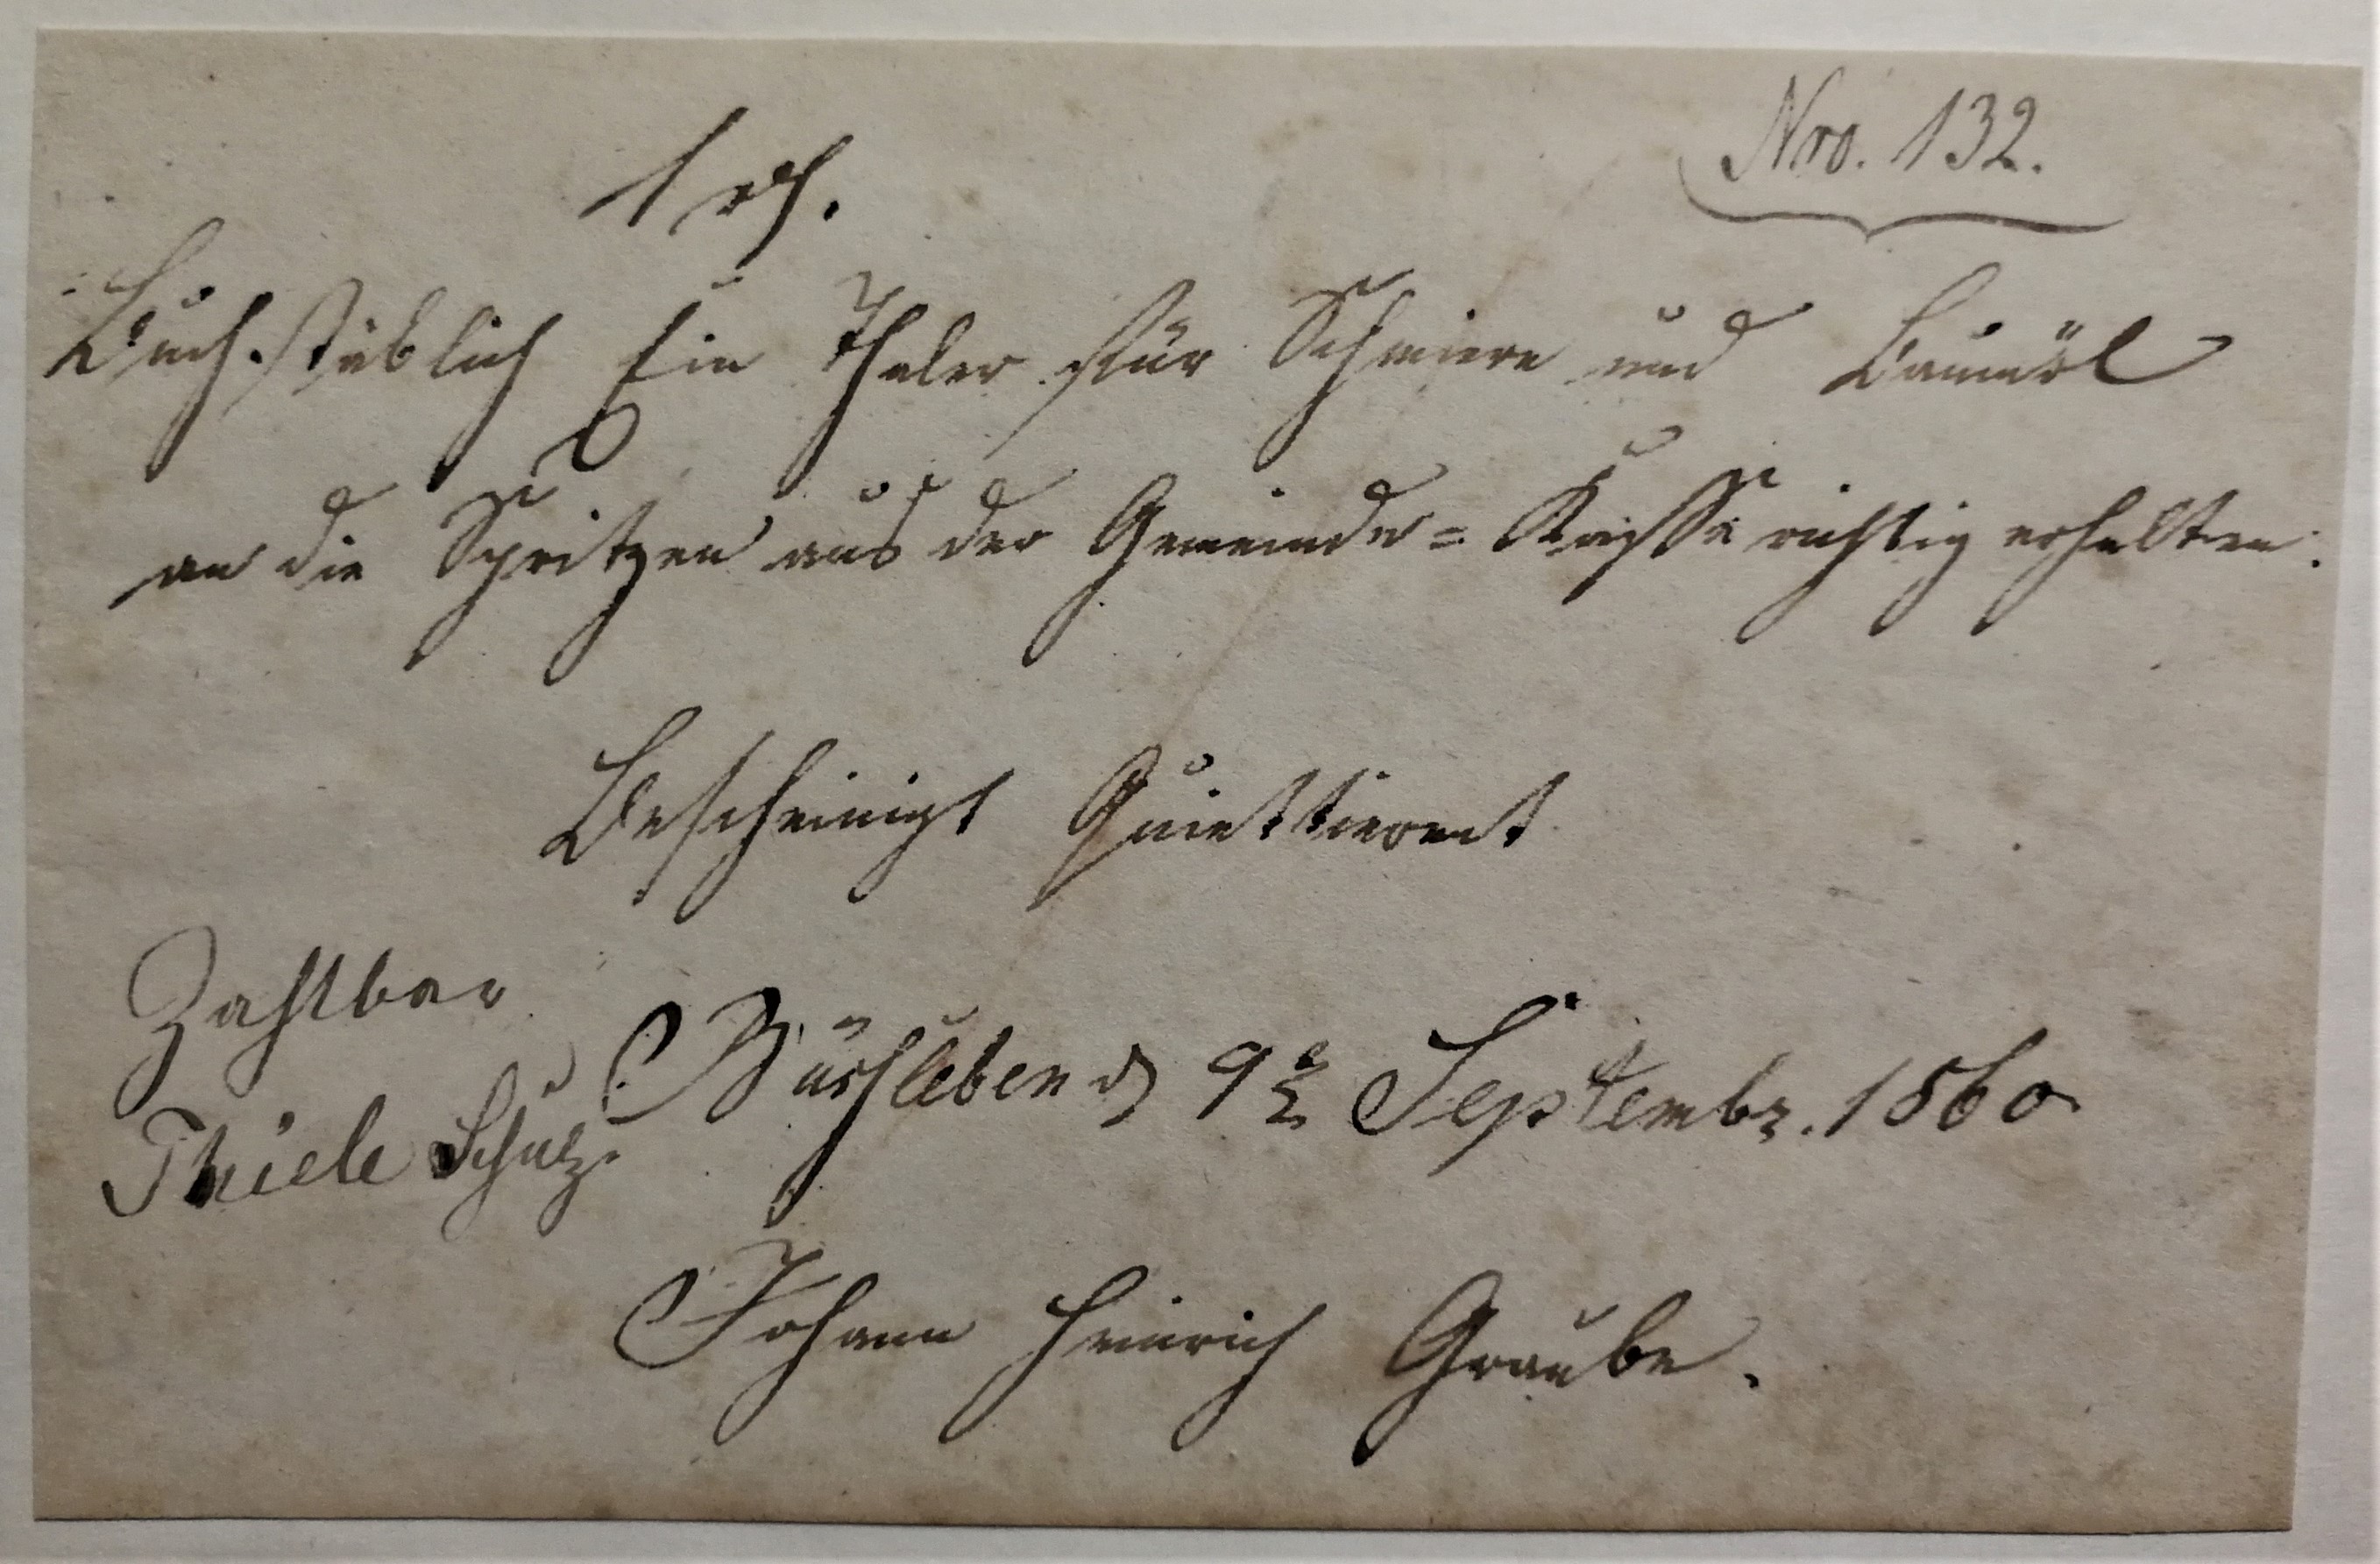 Nro. 132.
1 rth.
Buchstäblich Ein Thaler für Schmiere und Baumöl
an die Spritzen aus der Gemeinde = Kasse richtig erhalten.
Bescheinigt Quiettierent
Zahlbar
Büssleben d 9t Septembr. 1860
Thiele Schulz
Johann Heinrich Graube.